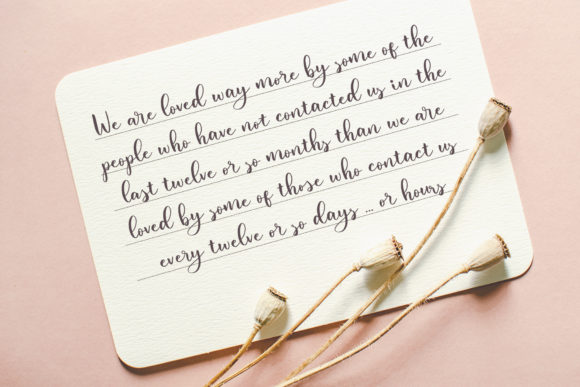 We are loved way more by some of the
people who have not contacted us in the
last twelve or so months than we are
loved by some of those who contact us
every twelve or so days ... or hours